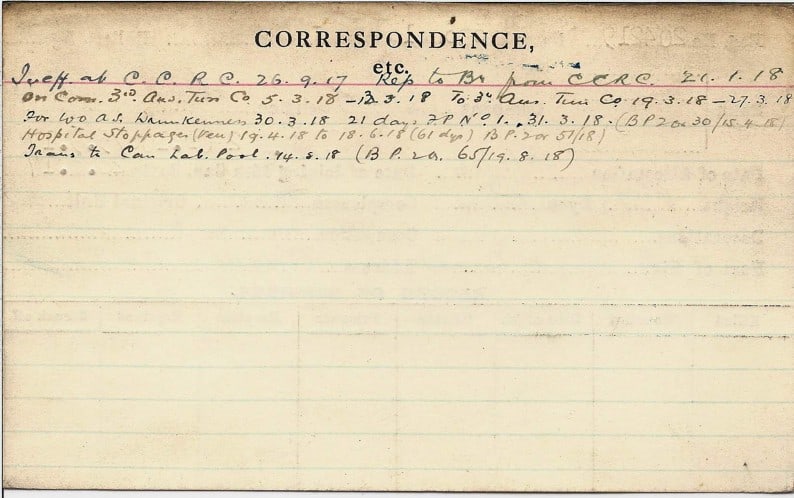 CORRESPONDENCE,
etc.
Ineff at C. C. R. C. 26. 9. 17 Rep to Bn from C C R C. 21. 1. 18
On Com. 3rd Aus. Tun Co 5. 3. 18 – 12 3. 18 To 3rd Aus. Tun Co 19. 3. 18 – 27. 3. 18
For W O A.S. Drunkenness 30. 3. 18 21 days F P No 1. 31. 3. 18. (B P 2 or 30/15. 4. 18)
Hospital Stoppages (Ven) 19. 4. 18 to 18. 6. 18 (61 dys) B P. 2 or 51/18)
Trans to Can Lab. Pool. 14. 8. 18 (B P. 2 or. 65/19. 8. 18)